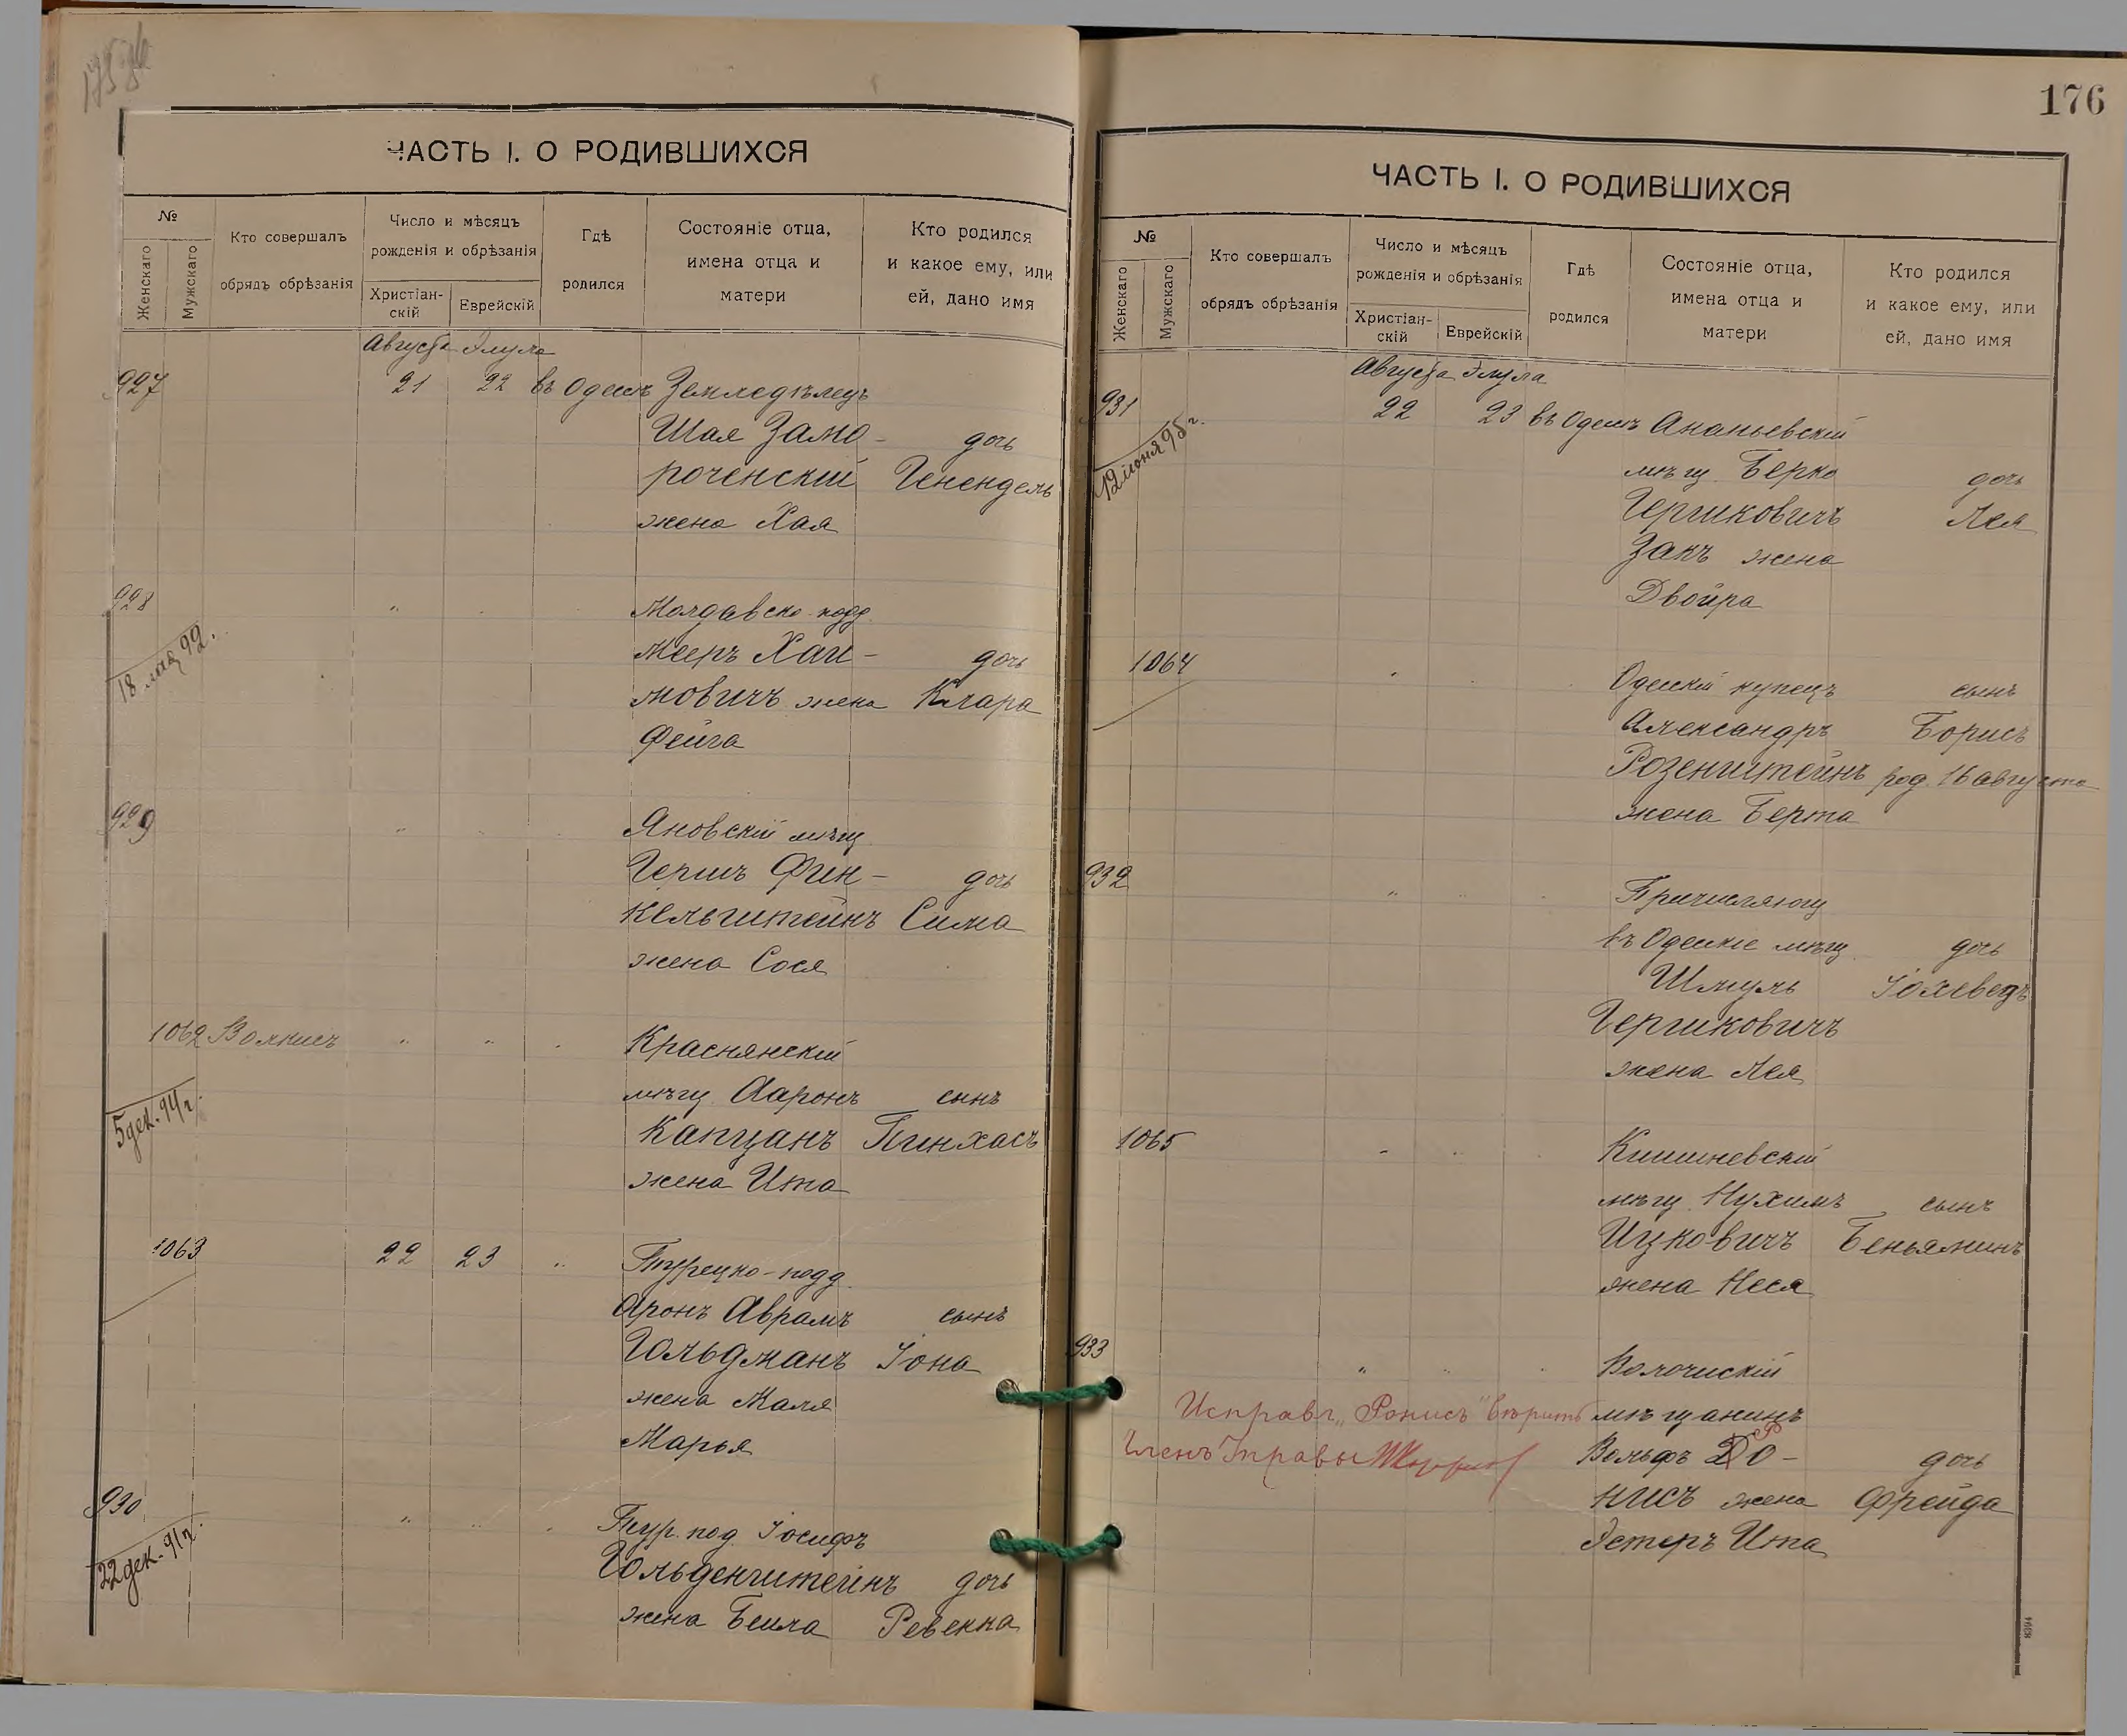 ЧАСТЬ I. О РОДИВШИХСЯ
№
Женскаго
Мужскаго
Кто совершалъ
обрядъ обрѣзанія
Число и мѣсяцъ
рожденія и обрѣзанія
Христіан-
скій
Еврейскій
Гдѣ
родился
Состояніе отца,
имена отца и
матери
Кто родился
и какое ему, или
ей, дано имя
Августа Элула
927 21 22 въ Одессѣ Земледѣлецъ
Шая Замо- дочь
роченский Генендель
жена Хая
928 " Молдавско-подд.
18 мая 99. Мееръ Хаи- дочь
мовичъ жена Клара
Фейга
929 " Яновскій мѣщ.
Гершъ Фин- дочь
кельштейнъ Сима
жена Сося
1062 Волкисъ " " Краснянскій
5 дек. 94 г. мѣщ. Ааронъ сынъ
Капцанъ Пинхасъ
жена Ита
1063 22 23 " Турецко-подд.
Аронъ Аврамъ сынъ
Гольдманъ Іона
жена Маля
Марья
930 " Тур. под. Іосифъ
22 дек. 91 г. Гольденштейнъ дочь
жена Беила Ревекка
176
ЧАСТЬ I. О РОДИВШИХСЯ
№
Женскаго
Мужскаго
Кто совершалъ
обрядъ обрѣзанія
Число и мѣсяцъ
рожденія и обрѣзанія
Христіан-
скій
Еврейскій
Гдѣ
родился
Состояніе отца,
имена отца и
матери
Кто родился
и какое ему, или
ей, дано имя
Августа Элула
931 22 23 въ Одессѣ Ананьевскій
12 іюня 95 г. мѣщ. Берко дочь
Гершковичъ Лея
Закъ жена
Двойра
1064 " Одесскій купецъ сынъ
Александръ Борисъ
Розенштейнъ род. 16 августа
жена Берта
932 " Причисляющ.
въ Одесскіе мѣщ. дочь
Шмуль Іохеведъ
Гершковичъ
жена Лея
1065 " Кишиневскій
мѣщ. Нухимъ сынъ
Ицковичъ Беньяминъ
жена Неся
933 " Волочискій
Исправл. „Ронисъ" вѣрить мѣщанинъ
Членъ Управы Вольфъ До- дочь
Р
нисъ жена Фрейда
Эстеръ Ита